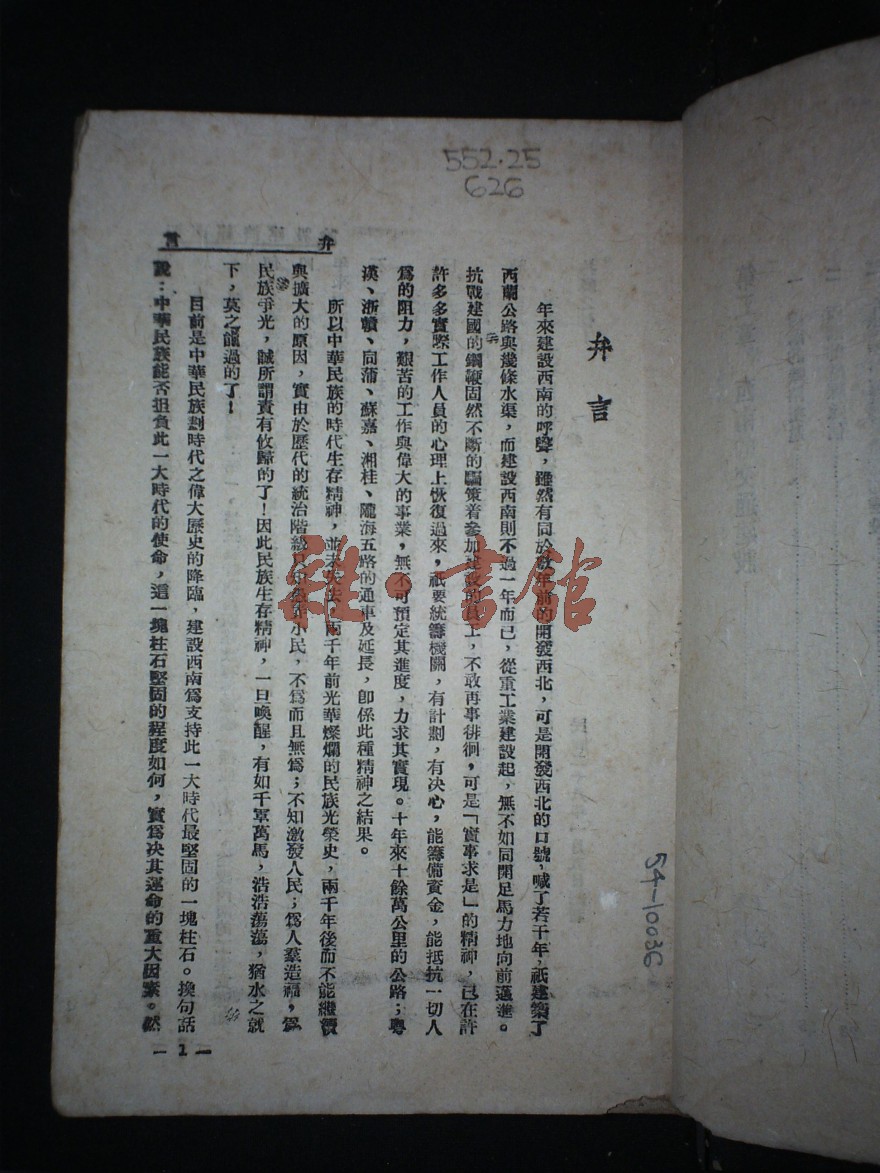 552.25
626
弁言
弁言
年來建設西南的呼聲，雖然有同於數年前的開發西北，可是開發西北的口號，喊了若干年，祇建築了
西蘭公路與幾條水渠，而建設西南則不過一年而已，從重工業建設起，無不如同開足馬力地向前邁進。
抗戰建國的鋼鞭固然不斷的驅策着參加建設的員工，不敢再事徘徊，可是「實事求是」的精神，已在許
許多多實際工作人員的心理上恢復過來，祇要統籌機關，有計劃，有決心，能籌備資金，能抵抗一切人
爲的阻力，艱苦的工作與偉大的事業，無不可預定其進度，力求其實現。十年來十餘萬公里的公路；粵
漢、浙贛、同蒲、蘇嘉、湘桂、隴海五路的通車及延長，卽係此種精神之結果。
所以中華民族的時代生存精神，並未失去，兩千年前光華燦爛的民族光榮史，兩千年後而不能繼續
與擴大的原因，實由於歷代的統治階級只知小民，不爲而且無爲；不知激發人民；爲人羣造福，爲
民族爭光，誠所謂責有攸歸的了！因此民族生存精神，一旦喚醒，有如千軍萬馬，浩浩蕩蕩，猶水之就
下，莫之能過的了！
目前是中華民族劃時代之偉大歷史的降臨，建設西南爲支持此一大時代最堅固的一塊柱石。換句話
說：中華民族能否担負此一大時代的使命，這一塊柱石堅固的程度如何，實爲決其運命的重大因素。然
— 1 —
54-10036
雜·書館